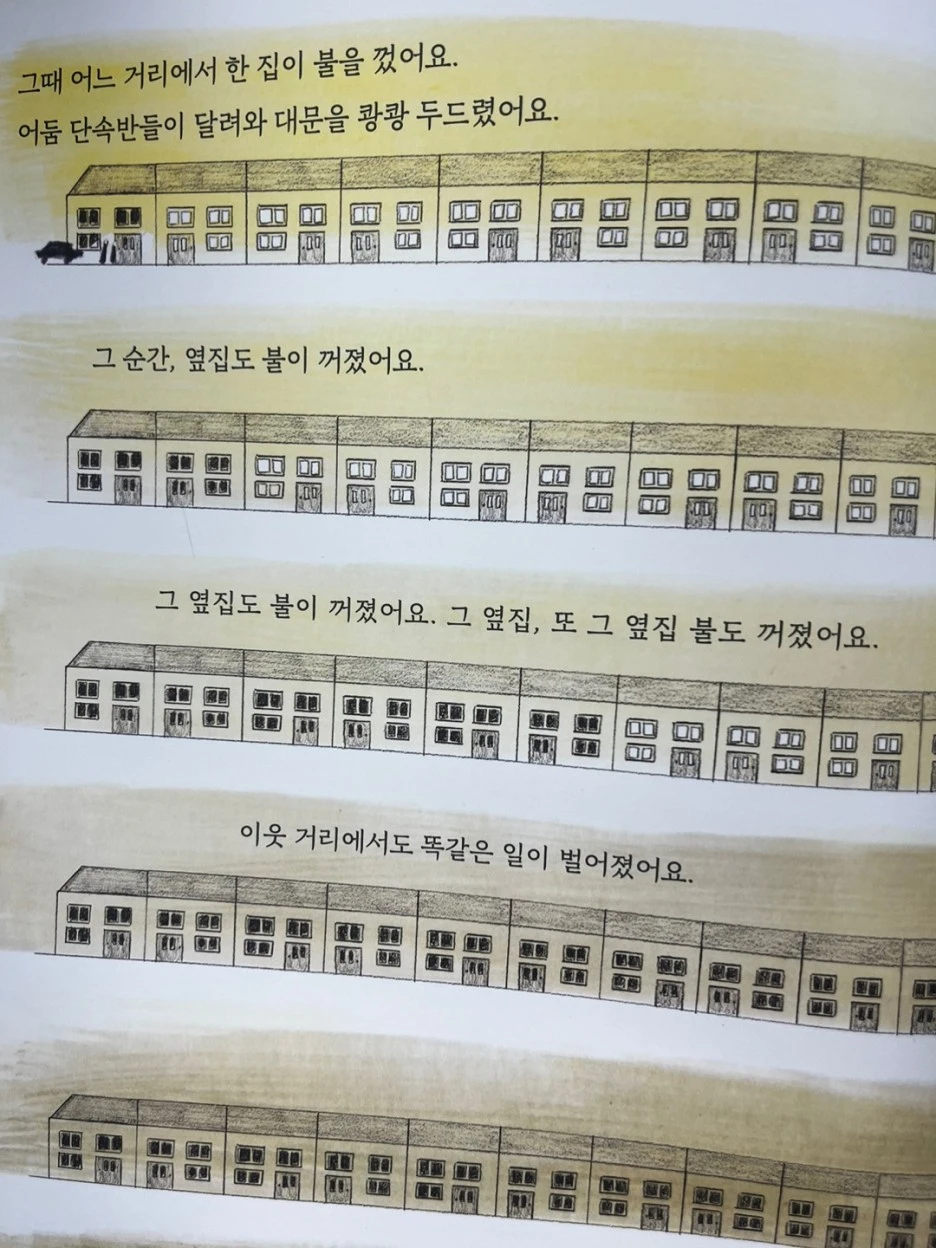 그때 어느 거리에서 한 집이 불을 껐어요.
어둠 단속반들이 달려와 대문을 쾅쾅 두드렸어요.
그 순간, 옆집도 불이 꺼졌어요.
그 옆집도 불이 꺼졌어요. 그 옆집, 또 그 옆집 불도 꺼졌어요.
이웃 거리에서도 똑같은 일이 벌어졌어요.